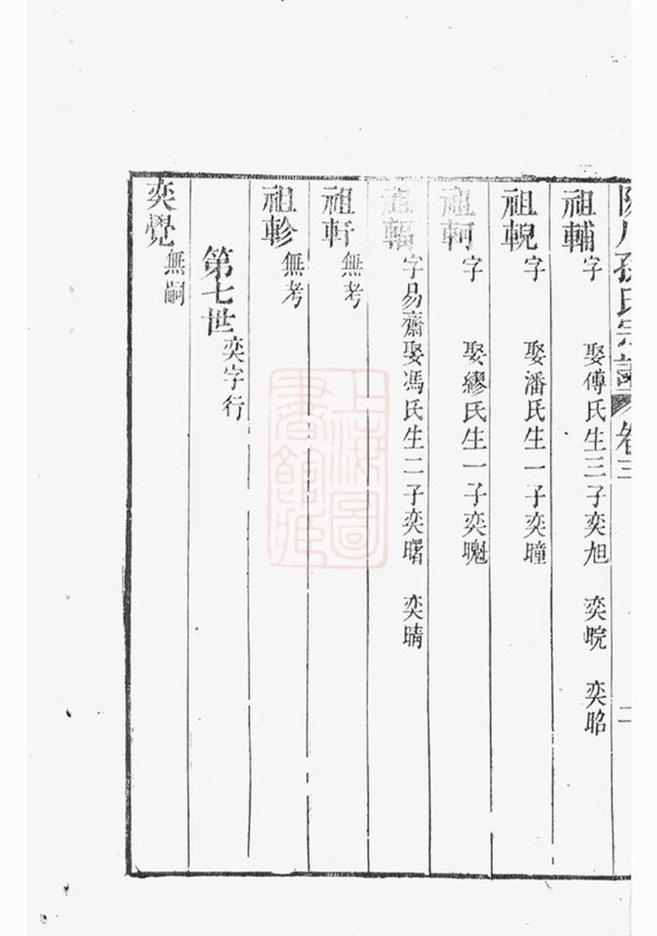 孫氏宗譜 卷三 二
祖輔 字 娶傅氏生三子奕旭 奕晥 奕昭
祖輗 字 娶潘氏生一子奕曈
祖軻 字 娶繆氏生一子奕
祖輻 字易齋娶馮氏生二子奕曙 奕晴
祖軒 無考
祖軫 無考
第七世 奕字行
奕覺 無嗣
上海圖書館藏